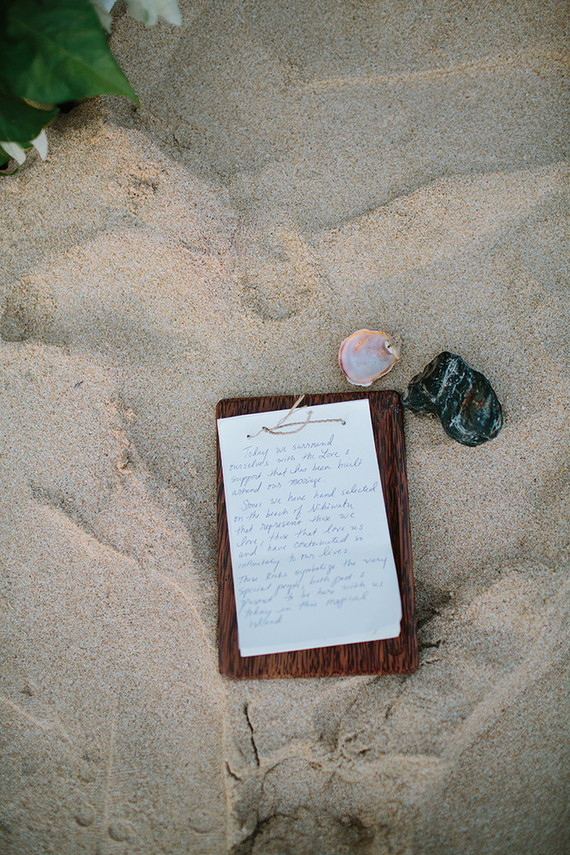 Today we surround
ourselves with the Love &
support that has been built
around our marriage.
Stones we have hand selected
on the beach of Nihiwatu
that represent those we
love, those that love us
and have contributed so
intimately to our lives.
These rocks symbolize the very
special people, both past &
present to be here with us
today in this magical
island